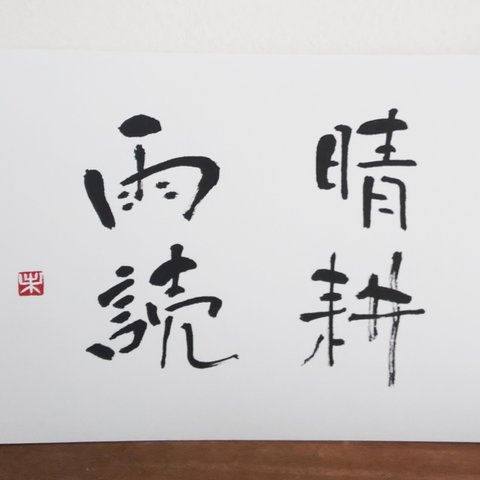 晴耕
雨読
朱